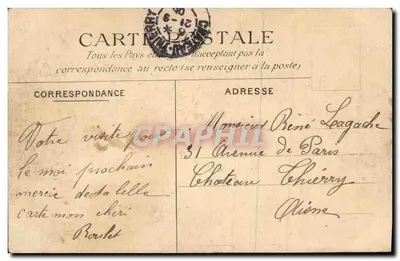 CARTE POSTALE
CHATEAU-THIERRY
Tous les Pays n'acceptant pas la
correspondance au recto (se renseigner à la poste)
CORRESPONDANCE
ADRESSE
Votre visite pour
le moi prochain
mercie de ta belle
carte mon chéri
Boulet
Monsieur Réné Lagache
31 Avenue de Paris
Chateau Thiérry
Aisne
CPRPHOTO